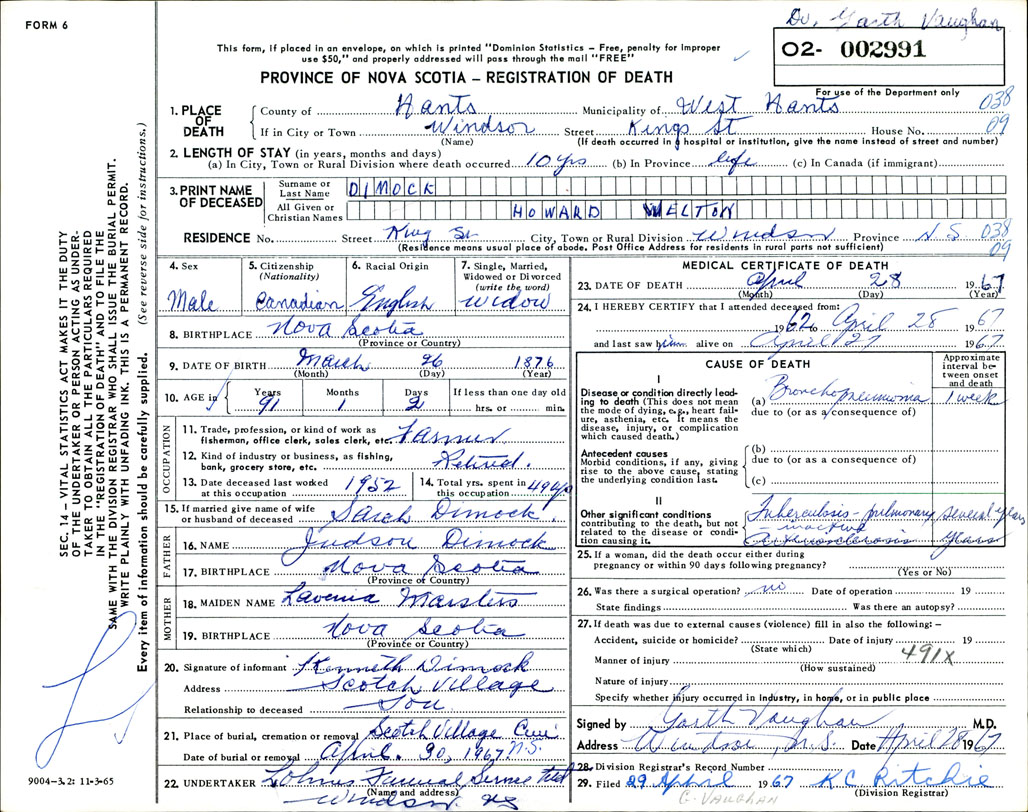 FORM 6
Dr. Garth Vaughan
02- 002991
This form, if placed in an envelope, on which is printed "Dominion Statistics – Free, penalty for improper
use $50," and properly addressed will pass through the mail "FREE"
PROVINCE OF NOVA SCOTIA – REGISTRATION OF DEATH
For use of the Department only
1. PLACE OF DEATH { County of Hants Municipality of West Hants 038
If in City or Town Windsor Street Kings St House No. 09
(Name) (If death occurred in a hospital or institution, give the name instead of street and number)
2. LENGTH OF STAY (in years, months and days)
(a) In City, Town or Rural Division where death occurred 10 yrs (b) In Province life (c) In Canada (if immigrant)
3. PRINT NAME OF DECEASED { Surname or Last Name DIMOCK
All Given or Christian Names HOWARD WELTON
RESIDENCE No. Street King St. City, Town or Rural Division Windsor Province N.S. 038
(Residence means usual place of abode. Post Office Address for residents in rural parts not sufficient) 09
4. Sex Male
5. Citizenship (Nationality) Canadian
6. Racial Origin English
7. Single, Married, Widowed or Divorced (write the word) Widow
8. BIRTHPLACE Nova Scotia
(Province or Country)
9. DATE OF BIRTH March 26 1876
(Month) (Day) (Year)
10. AGE in Years Months Days If less than one day old
91 1 2 hrs. or min.
OCCUPATION
11. Trade, profession, or kind of work as
fisherman, office clerk, sales clerk, etc. Farmer
12. Kind of industry or business, as fishing,
bank, grocery store, etc. Retired.
13. Date deceased last worked at this occupation 1952
14. Total yrs. spent in this occupation 49 yrs
15. If married give name of wife
or husband of deceased Sarah Dimock
FATHER
16. NAME Judson Dimock
17. BIRTHPLACE Nova Scotia
(Province or Country)
MOTHER
18. MAIDEN NAME Lavenia Marsters
19. BIRTHPLACE Nova Scotia
(Province or Country)
20. Signature of informant Kenneth Dimock
Address Scotch Village
Relationship to deceased Son
21. Place of burial, cremation or removal Scotch Village Cem.
Date of burial or removal April. 30, 1967 N.S.
22. UNDERTAKER Funeral Service
(Name and address)
Windsor NS
MEDICAL CERTIFICATE OF DEATH
23. DATE OF DEATH April 28 1967
(Month) (Day) (Year)
24. I HEREBY CERTIFY that I attended deceased from:
1962 to April 28 1967
and last saw him alive on April 27 1967
CAUSE OF DEATH
Approximate interval between onset and death
I
Disease or condition directly leading to death (This does not mean
the mode of dying, e.g., heart failure, asthenia, etc. It means the
disease, injury, or complication
which caused death.)
(a) Bronchopneumonia 1 week
due to (or as a consequence of)
Antecedent causes
Morbid conditions, if any, giving
rise to the above cause, stating
the underlying condition last.
(b)
due to (or as a consequence of)
(c)
II
Other significant conditions
contributing to the death, but not
related to the disease or condition causing it.
Tuberculosis - pulmonary several years
- inactive
Arteriosclerosis years
25. If a woman, did the death occur either during
pregnancy or within 90 days following pregnancy?
(Yes or No)
26. Was there a surgical operation? no Date of operation 19
State findings Was there an autopsy?
27. If death was due to external causes (violence) fill in also the following: –
Accident, suicide or homicide? Date of injury 19
(State which)
491X
Manner of injury
(How sustained)
Nature of injury
Specify whether injury occurred in industry, in home, or in public place
Signed by Garth Vaughan M.D.
Address Windsor, N.S. Date April 28 1967
28. Division Registrar's Record Number
29. Filed 29 April 1967 K C Ritchie
(Division Registrar)
G. VAUGHAN
SEC. 14 – VITAL STATISTICS ACT MAKES IT THE DUTY
OF THE UNDERTAKER OR PERSON ACTING AS UNDERTAKER TO OBTAIN ALL THE PARTICULARS REQUIRED
IN THE "REGISTRATION OF DEATH" AND TO FILE THE
SAME WITH THE DIVISION REGISTRAR WHO SHALL ISSUE THE BURIAL PERMIT.
WRITE PLAINLY WITH UNFADING INK. THIS IS A PERMANENT RECORD.
Every item of information should be carefully supplied. (See reverse side for instructions.)
9004–3.2: 11-3-65